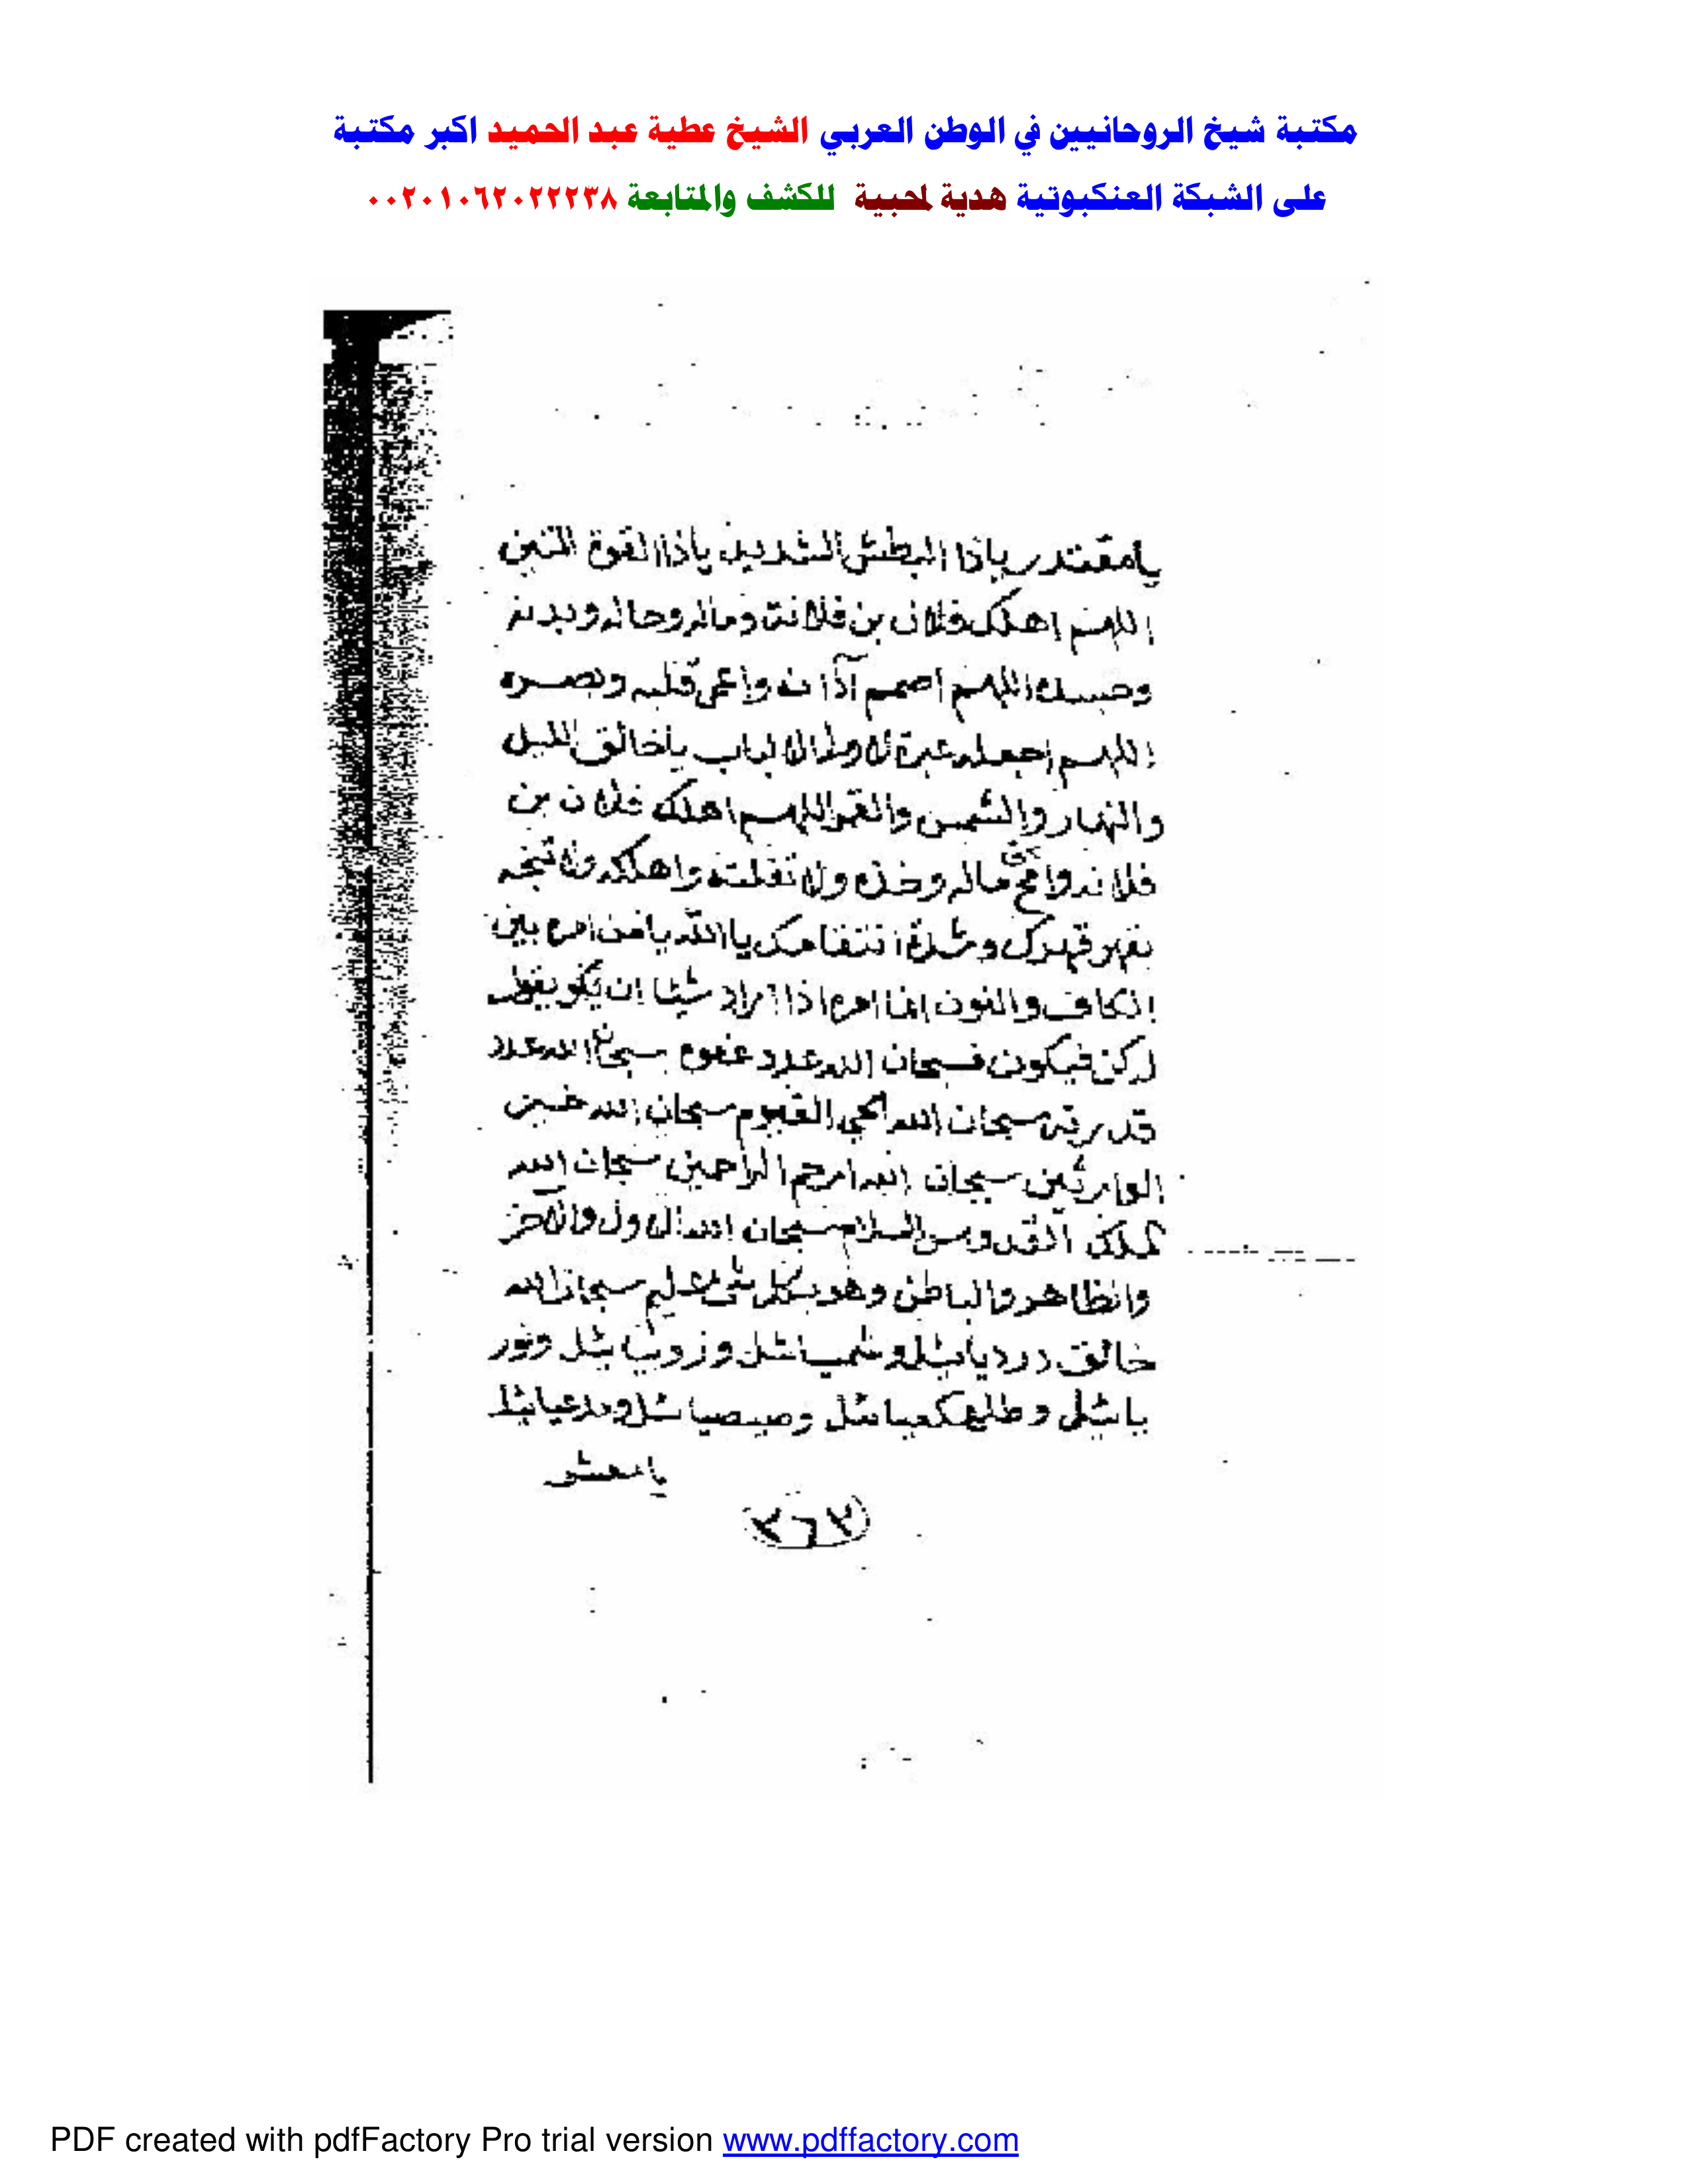 مكتبة شيخ الروحانيين في الوطن العربي الشيخ عطية عبد الحميد اكبر مكتبة
على الشبكة العنكبوتية هدية لمحبية للكشف والمتابعة ٠٠٢٠١٠٦٢٠٢٢٢٣٨
يا مقتدر ياذا البطش الشديد ياذا القوة المتين
اللهم اهلك فلان بن فلانة وماله وحاله وبدنه
اللهم اصمم آذانه واعمى قلبه وبصره
اللهم اجعله عبرة لاولى الالباب يا خالق الليل
والنهار والشمس والقمر اللهم اهلك فلان بن
فلانه وامحق ماله وخذه ولا تفلته واهلكه ولا تنجه
بقهر قهرك وشدة انتقامك يا الله يا من امره بين
الكاف والنون انما امره اذا اراد شيئا ان يكو يقول
له كن فيكون فسبحان الله عدد عفوه سبحان الله عدد
قدرته سبحان الله الحي القيوم سبحان الله خير
الوارثين سبحان الله ارحم الراحمين سبحان الله
الملك القدوس السلام سبحان الله الاول والآخر
والظاهر والباطن وهو بكل شئ عليم سبحان الله
خالق دردیائیل و وزوبیائیل ونور
یائیل و وصیصیائیل
يا معشر
٣٦٧
PDF created with pdfFactory Pro trial version www.pdffactory.com